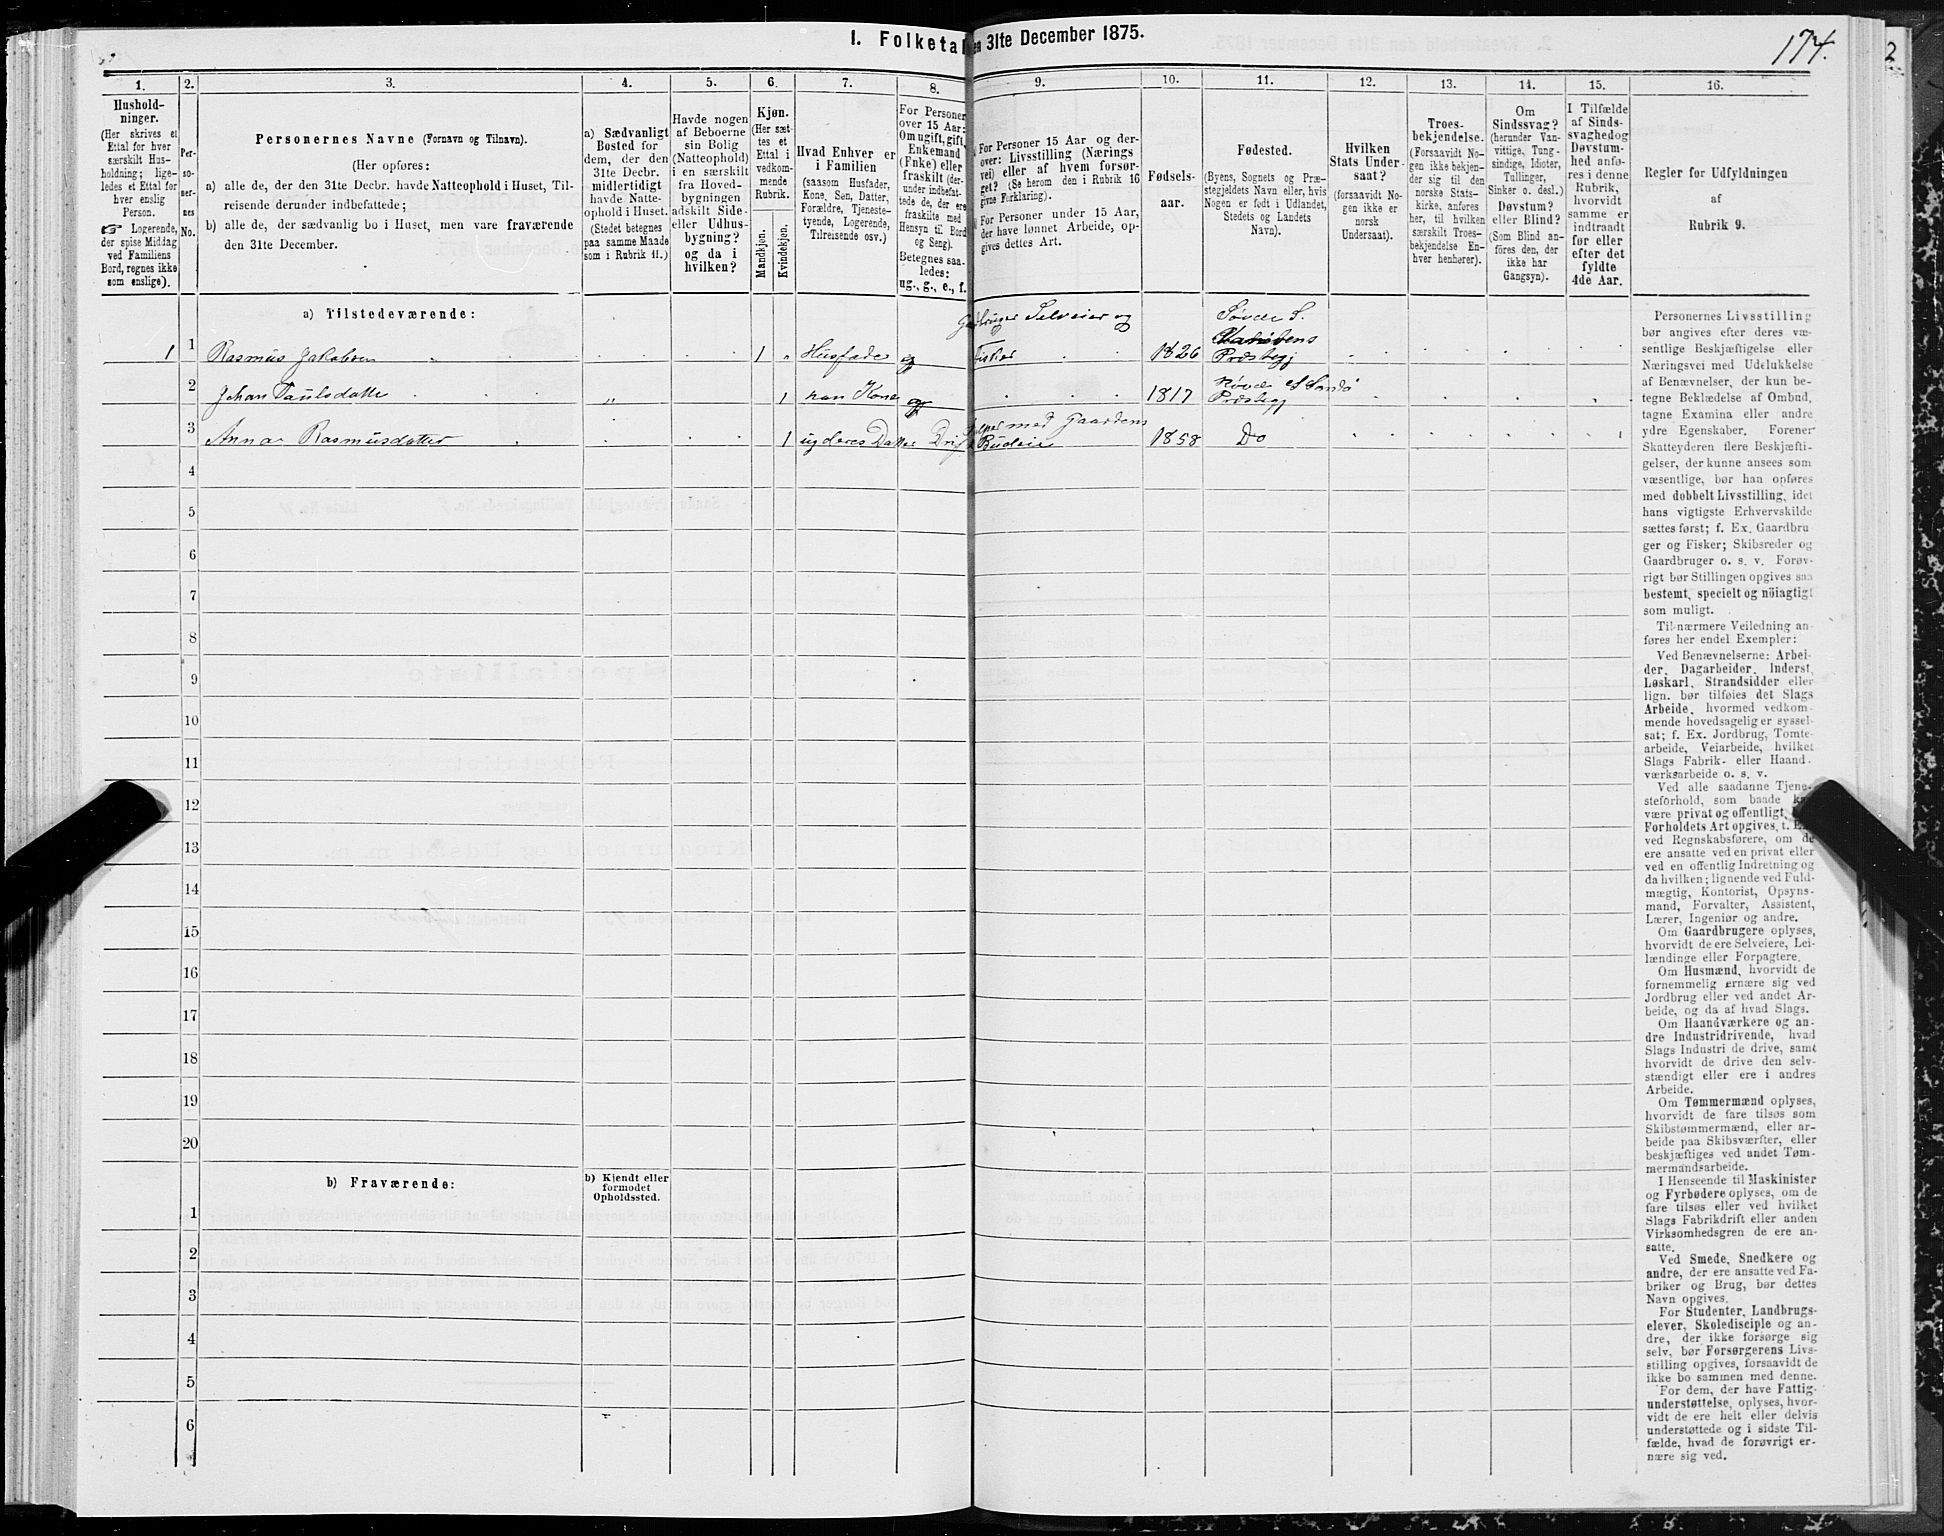 1. Folketal den 31te December 1875.
174.
1.
Hushold-
ninger.
(Her skrives et
Ettal for hver
særskilt Hus-
holdning; lige-
ledes et Ettal for
hver enslig
Person.
☞ Logerende,
der spise Middag
ved Familiens
Bord, regnes ikke
som enslige).
2.
Per-
so-
ner-
nes
No.
3.
Personernes Navne (Fornavn og Tilnavn).
(Her opføres:
a) alle de, der den 31te Decbr. havde Natteophold i Huset, Til-
reisende derunder indbefattede;
b) alle de, der sædvanlig bo i Huset, men vare fraværende
den 31te December.
4.
a) Sædvanligt
Bosted for
dem, der den
31te Decbr.
midlertidigt
havde Natte-
ophold i Huset.
(Stedet betegnes
paa samme Maade
som i Rubrik 11.)
5.
Havde nogen
af Beboerne
sin Bolig
(Natteophold)
i en særskilt
fra Hoved-
bygningen
adskilt Side-
eller Udhus-
bygning?
og da i
hvilken?
6.
Kjøn.
(Her sæt-
tes et
Ettal i
vedkom-
mende
Rubrik.
Mandkjøn.
Kvindekjøn.
7.
Hvad Enhver er
i Familien
(saasom Husfader,
Kone, Søn, Datter,
Forældre, Tjeneste-
tyende, Logerende,
Tilreisende osv.)
8.
For Personer
over 15 Aar:
Om ugift, gift,
Enkemand
(Enke) eller
fraskilt (der-
under indbefat-
tede de, der ere
fraskilte med
Hensyn til Bord
og Seng).
Betegnes saa-
ledes:
ug., g., e., f.
9.
For Personer 15 Aar og der-
over: Livsstilling (Nærings
vei) eller af hvem forsør-
get? (Se herom den i Rubrik 16
givne Forklaring).
For Personer under 15 Aar,
der have lønnet Arbeide, op-
gives dettes Art.
10.
Fødsels-
aar.
11.
Fødested.
(Byens, Sognets og Præ-
stegjeldets Navn eller, hvis
Nogen er født i Udlandet,
Stedets og Landets
Navn).
12.
Hvilken
Stats Under-
saat?
(forsaavidt No-
gen ikke er
norsk
Undersaat).
13.
Troes-
bekjendelse.
(Forsaavidt No-
gen ikke bekjen-
der sig til den
norske Stats-
kirke, anføres
her, til hvilken
særskilt Troes-
bekjendelse En-
hver henhører).
14.
Om
Sindssvag?
(herunder Van-
vittige, Tung-
sindige, Idioter,
Tullinger,
Sinker o. desl.)
Døvstum?
eller Blind?
(Som Blind an-
føres den, der
ikke har
Gangsyn).
15.
I Tilfælde
af Sinds-
svaghed og
Døvstum-
hed anfø-
res i denne
Rubrik,
hvorvidt
samme er
indtraadt
før eller
efter det
fyldte
4de Aar.
16.
Regler for Udfyldningen
af
Rubrik 9.
a) Tilstedeværende:
Gaardbruger Selveier og
1 1 Rasmus Jakobsen 1 Husfader g Fisker 1826 Præstegj
2 Johan Paulsdatter 1 han Kone g 1817 Præstegj
med Gaardens
3 Anna Rasmusdatter 1 ug deres Datter Budeie 1858 Do
4
5
6
7
8
9
10
11
12
13
14
15
16
17
18
19
20
b) Fraværende:
b) Kjendt eller
formodet
Opholdssted.
1
2
3
4
5
6
Personernes Livsstilling
bør angives efter deres væ-
sentlige Beskjæftigelse eller
Næringsvei med Udelukkelse
af Benævnelser, der kun be-
tegne Beklædelse af Ombud,
tagne Examina eller andre
ydre Egenskaber. Forener
Skatteyderen flere Beskjæfti-
gelser, der kunne ansees som
væsentlige, bør han opføres
med dobbelt Livsstilling, idet
hans vigtigste Erhvervskilde
sættes først; f. Ex. Gaardbru
ger og Fisker; Skibsreder og
Gaardbruger o. s. v. Forøv-
rigt bør Stillingen opgives saa
bestemt, specielt og nöiagtigt
som muligt.
Til nærmere Veiledning an-
føres her endel Exempler:
Ved Benævnelserne: Arbei-
der, Dagarbeider, Inderst,
Løskarl, Strandsidder eller
lign. bør tilføies det Slags
Arbeide, hvormed vedkom-
mende hovedsagelig er syssel-
sat; f. Ex. Jordbrug, Tomte-
arbeide, Veiarbeide, hvilket
Slags Fabrik- eller Haand
værksarbeide o. s. v.
Ved alle saadanne Tjene-
steforhold, som baade
være privat og offentligt,
Forholdets Art opgives,
ved Regnskabsførere, om de
ere ansatte ved en privat eller
ved en offentlig Indretning og
da hvilken; lignende ved Fuld-
mægtig, Kontorist, Opsyns-
mand, Forvalter, Assistent,
Lærer, Ingeniør og andre.
Om Gaardbrugere oplyses,
hvorvidt de ere Selveiere, Lei-
lændinge eller Forpagtere.
Om Husmænd, hvorvidt de
fornemmelig ernære sig ved
Jordbrug eller ved andet Ar-
beide, og da af hvad Slags.
Om Haandværkere og an-
dre Industridrivende, hvad
Slags Industri de drive, samt
hvorvidt de drive den selv-
stændigt eller ere i andres
Arbeide.
Om Tømmermænd oplyses,
hvorvidt de fare tilsøs som
Skibstømmermænd, eller ar-
beide paa Skibsværfter, eller
beskjæftiges ved andet Tøm-
mermandsarbeide.
I Henseende til Maskinister
og Fyrbødere oplyses, om de
fare tilsøs eller ved hvilket
Slags Fabrikdrift eller anden
Virksomhedsgren de ere an-
satte.
Ved Smede, Snedkere og
andre, der ere ansatte ved Fa-
briker og Brug, bør dettes
Navn opgives.
For Studenter, Landbrugs-
elever, Skoledisciple og an-
dre, der ikke forsørge sig
selv, bør Forsørgerens Livs-
stilling opgives, forsaavidt de
ikke bo sammen med denne.
For dem, der have Fattig-
understøttelse, oplyses, hvor-
vidt de ere helt eller delvis
understøttede og i sidste Til-
fælde, hvad de forøvrigt er-
nære sig ved.